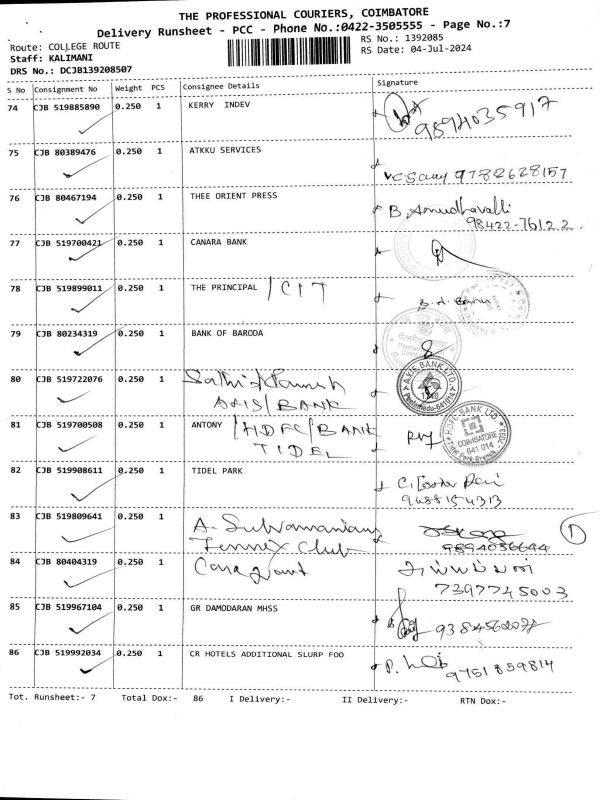 THE PROFESSIONAL COURIERS, COIMBATORE
Delivery Runsheet - PCC - Phone No.:0422-3505555 - Page No.:7
Route: COLLEGE ROUTE
RS No.: 1392085
Staff: KALIMANI
RS Date: 04-Jul-2024
DRS No.: DCJB139208507
S No Consignment No Weight PCS Consignee Details Signature
74 CJB 519885890 0.250 1 KERRY INDEV
9894035917
75 CJB 80389476 0.250 1 ATKKU SERVICES
9782628157
76 CJB 80467194 0.250 1 THEE ORIENT PRESS B. Amudhavalli
98422-76122
77 CJB 519700421 0.250 1 CANARA BANK
78 CJB 519899011 0.250 1 THE PRINCIPAL / CIT
79 CJB 80234319 0.250 1 BANK OF BARODA
80 CJB 519722076 0.250 1
AXIS/BANK
AXIS BANK LTD.
Peelamedu-641014
81 CJB 519700508 0.250 1 ANTONY / HDFC/BANK
TIDEL
HDFC BANK LTD.
COIMBATORE
641 014
Tidel Park Branch
82 CJB 519908611 0.250 1 TIDEL PARK
9688154313
83 CJB 519809641 0.250 1 A. Subramaniam
Tennex Club
9894036644
1
84 CJB 80404319 0.250 1
7397745003
85 CJB 519967104 0.250 1 GR DAMODARAN MHSS
9384562077
86 CJB 519992034 0.250 1 CR HOTELS ADDITIONAL SLURP FOO
9751859814
Tot. Runsheet:- 7 Total Dox:- 86 I Delivery:- II Delivery:- RTN Dox:-